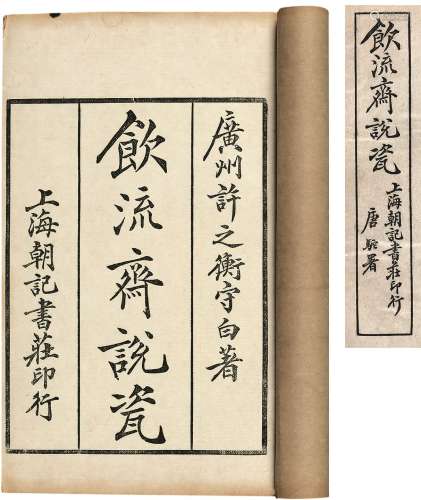 廣州許之衡守白著
飲流齋說瓷
上海朝記書莊印行
飲流齋說瓷
上海朝記書莊印行
唐駝署